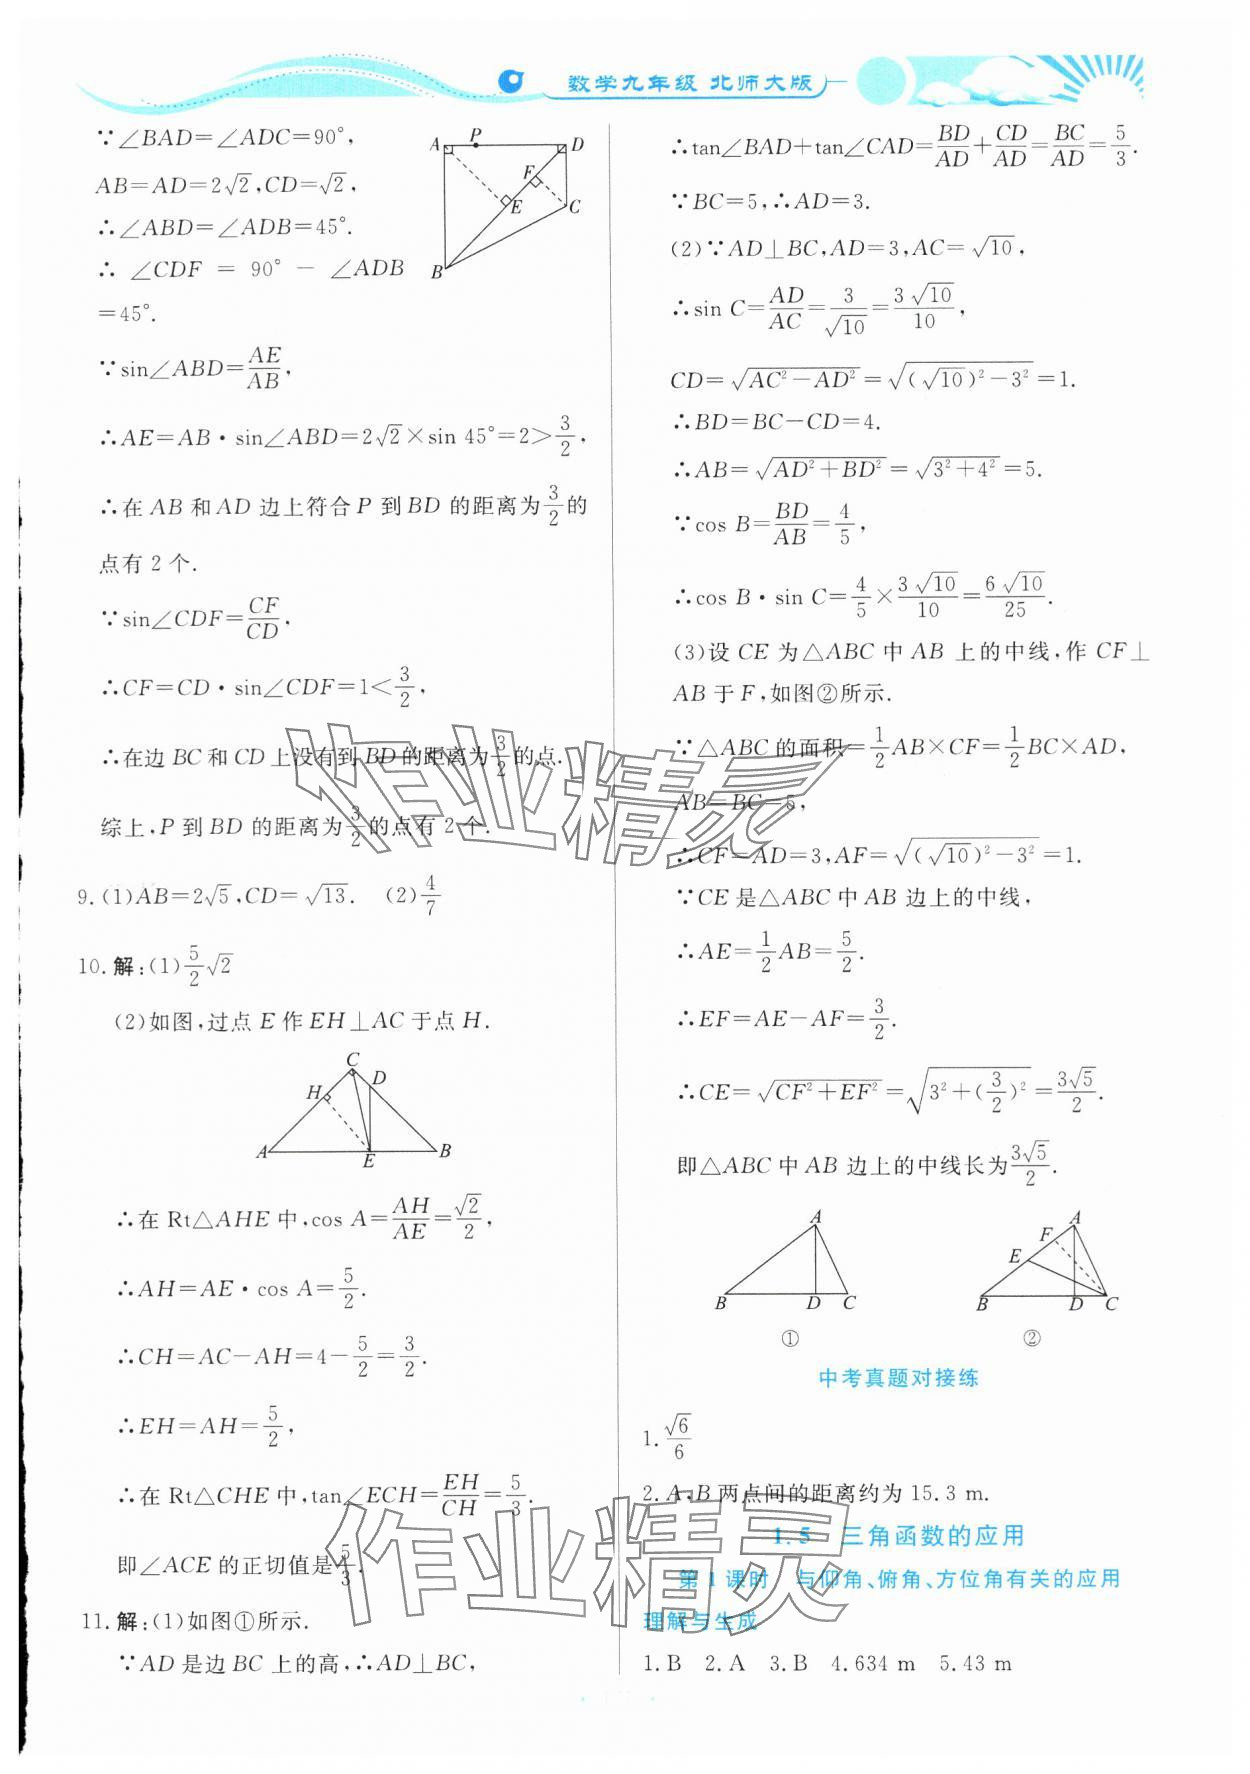 数学九年级 北师大版
∵∠BAD=∠ADC=90°,
AB=AD=2√2,CD=√2,
∴∠ABD=∠ADB=45°.
∴ ∠CDF = 90° − ∠ADB
=45°.
A P D
F
E C
B
∵sin∠ABD=AE/AB,
∴AE=AB·sin∠ABD=2√2×sin 45°=2>3/2,
∴在 AB 和 AD 边上符合 P 到 BD 的距离为3/2的
点有 2 个.
∵sin∠CDF=CF/CD,
∴CF=CD·sin∠CDF=1<3/2,
∴在边 BC 和 CD 上没有到 BD 的距离为3/2的点.
综上,P 到 BD 的距离为3/2的点有 2 个.
9.(1)AB=2√5,CD=√13. (2)4/7
10.解:(1)5/2√2
(2)如图,过点 E 作 EH⊥AC 于点 H.
C
H D
A E B
∴在 Rt△AHE 中,cos A=AH/AE=√2/2,
∴AH=AE·cos A=5/2.
∴CH=AC−AH=4−5/2=3/2.
∴EH=AH=5/2,
∴在 Rt△CHE 中,tan∠ECH=EH/CH=5/3.
即∠ACE 的正切值是5/3.
11.解:(1)如图①所示.
∵AD 是边 BC 上的高,∴AD⊥BC,
∴tan∠BAD+tan∠CAD=BD/AD+CD/AD=BC/AD=5/3.
∵BC=5,∴AD=3.
(2)∵AD⊥BC,AD=3,AC=√10,
∴sin C=AD/AC=3/√10=3√10/10,
CD=√(AC²−AD²)=√((√10)²−3²)=1.
∴BD=BC−CD=4.
∴AB=√(AD²+BD²)=√(3²+4²)=5.
∵cos B=BD/AB=4/5,
∴cos B·sin C=4/5×3√10/10=6√10/25.
(3)设 CE 为△ABC 中 AB 上的中线,作 CF⊥
AB 于 F,如图②所示.
∵△ABC 的面积=1/2AB×CF=1/2BC×AD,
AB=BC=5,
∴CF=AD=3,AF=√((√10)²−3²)=1.
∵CE 是△ABC 中 AB 边上的中线,
∴AE=1/2AB=5/2.
∴EF=AE−AF=3/2.
∴CE=√(CF²+EF²)=√(3²+(3/2)²)=3√5/2.
即△ABC 中 AB 边上的中线长为3√5/2.
A
B D C
①
A
F
E
B D C
②
中考真题对接练
1.√6/6
2.A、B 两点间的距离约为 15.3 m.
1.5 三角函数的应用
第 1 课时 与仰角、俯角、方位角有关的应用
理解与生成
1.B 2.A 3.B 4.634 m 5.43 m
作业精灵
作业精灵